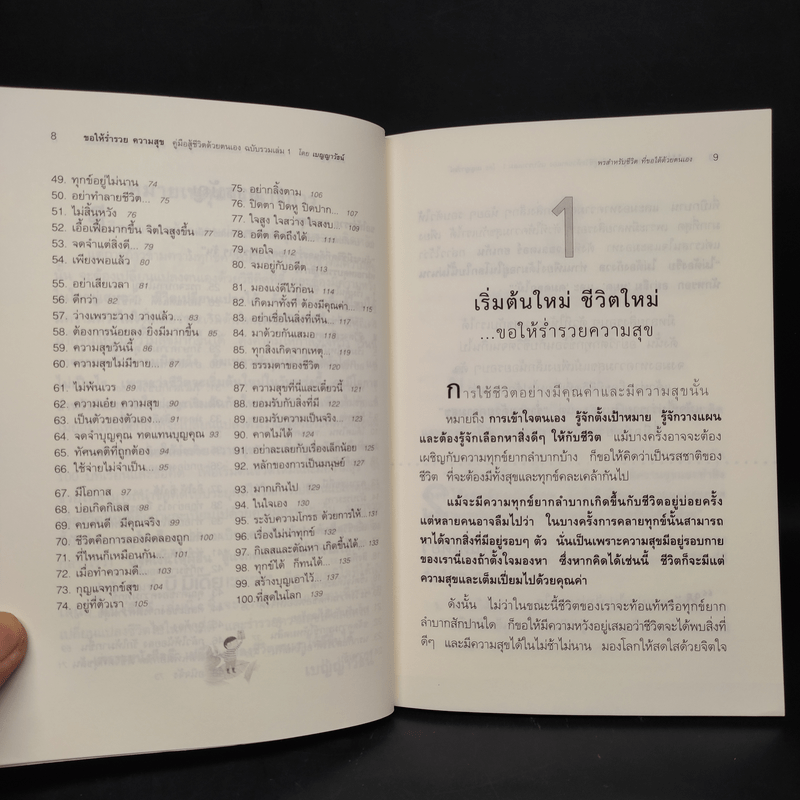 8 ขอให้ร่ำรวย ความสุข คู่มือสู้ชีวิตด้วยตนเอง ฉบับรวมเล่ม 1 โดย เมญญาวัธน์
49. ทุกข์อยู่ไม่นาน 74
50. อย่าทำลายชีวิต... 75
51. ไม่สิ้นหวัง 76
52. เอื้อเฟื้อมากขึ้น จิตใจสูงขึ้น 77
53. จดจำแต่สิ่งดี... 79
54. เพียงพอแล้ว 80
55. อย่าเสียเวลา 81
56. ดีกว่า 82
57. ว่างเพราะวาง วางแล้ว... 83
58. ต้องการน้อยลง ยิ่งมีมากขึ้น 85
59. ความสุขวันนี้ 86
60. ความสุขไม่มีขาย... 87
61. ไม่พ้นเวร 89
62. ความเอ๋ย ความสุข 90
63. เป็นตัวของตัวเอง... 91
64. จดจำบุญคุณ ทดแทนบุญคุณ 93
65. ทัศนคติที่ถูกต้อง 94
66. ใช้จ่ายไม่จำเป็น... 95
67. มีโอกาส 97
68. บ่อเกิดกิเลส 98
69. คบคนดี มีคุณจริง 99
70. ชีวิตคือการลองผิดลองถูก 100
71. ที่ไหนก็เหมือนกัน... 101
72. เมื่อทำความดี... 103
73. กุญแจทุกข์สุข 104
74. อยู่ที่ตัวเรา 105
75. อย่ากลิ้งตาม 106
76. ปิดตา ปิดหู ปิดปาก... 107
77. ใจสูง ใจสว่าง ใจสงบ... 109
78. อดีต คิดถึงได้... 111
79. พอใจ 112
80. จมอยู่กับอดีต 113
81. มองแง่ดีไว้ก่อน 114
82. เกิดมาทั้งที ต้องมีคุณค่า... 115
83. อย่าเชื่อในสิ่งที่เห็น... 117
84. มาด้วยกันเสมอ 118
85. ทุกสิ่งเกิดจากเหตุ... 119
86. ธรรมดาของชีวิต 120
87. ความสุขที่นี่และเดี๋ยวนี้ 121
88. ยอมรับกับสิ่งที่มี 122
89. ยอมรับความเป็นจริง... 123
90. คาดไม่ได้ 124
91. อย่าละเลยกับเรื่องเล็กน้อย 125
92. หลักของการเป็นมนุษย์ 127
93. มากเกินไป 129
94. ในใจเอง 130
95. ระงับความโกรธ ด้วยการให้... 131
96. เรื่องไม่น่าทุกข์ 132
97. กิเลสและตัณหา เกิดขึ้นได้... 133
98. ทุกข์ได้ ก็ทนได้... 135
99. สร้างบุญเอาไว้... 137
100. ที่สุดในโลก 139
พรสำหรับชีวิต ที่ขอได้ด้วยตนเอง 9
1
เริ่มต้นใหม่ ชีวิตใหม่
...ขอให้ร่ำรวยความสุข
การใช้ชีวิตอย่างมีคุณค่าและมีความสุขนั้น
หมายถึง การเข้าใจตนเอง รู้จักตั้งเป้าหมาย รู้จักวางแผน
และต้องรู้จักเลือกหาสิ่งดีๆ ให้กับชีวิต แม้บางครั้งอาจจะต้อง
เผชิญกับความทุกข์ยากลำบากบ้าง ก็ขอให้คิดว่าเป็นรสชาติของ
ชีวิต ที่จะต้องมีทั้งสุขและทุกข์คละเคล้ากันไป
แม้จะมีความทุกข์ยากลำบากเกิดขึ้นกับชีวิตอยู่บ่อยครั้ง
แต่หลายคนอาจลืมไปว่า ในบางครั้งการคลายทุกข์นั้นสามารถ
หาได้จากสิ่งที่มีอยู่รอบๆ ตัว นั่นเป็นเพราะความสุขมีอยู่รอบกาย
ของเรานี่เองถ้าตั้งใจมองหา ซึ่งหากคิดได้เช่นนี้ ชีวิตก็จะมีแต่
ความสุขและเต็มเปี่ยมไปด้วยคุณค่า
ดังนั้น ไม่ว่าในขณะนี้ชีวิตของเราจะท้อแท้หรือทุกข์ยาก
ลำบากสักปานใด ก็ขอให้มีความหวังอยู่เสมอว่าชีวิตจะได้พบสิ่งที่
ดีๆ และมีความสุขได้ในไม่ช้าไม่นาน มองโลกให้สดใสด้วยจิตใจ